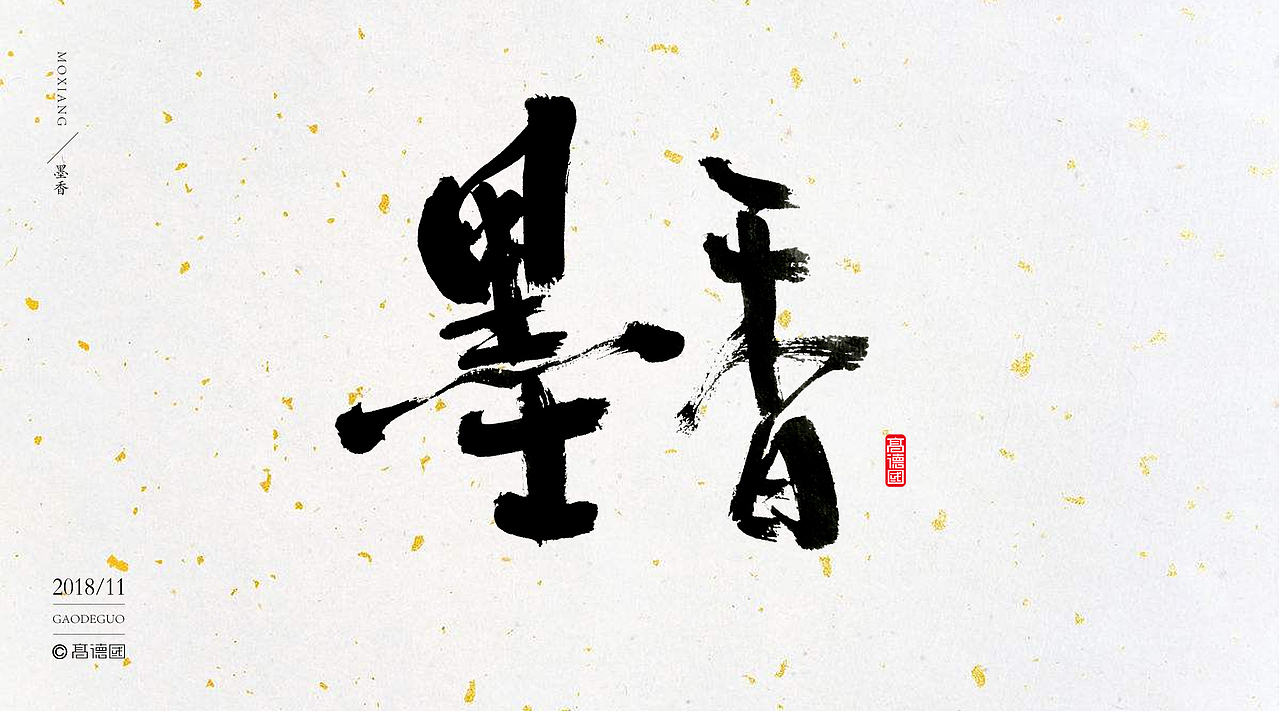 MOXIANG
墨香
墨香
髙德國
2018/11
GAODEGUO
©髙德國